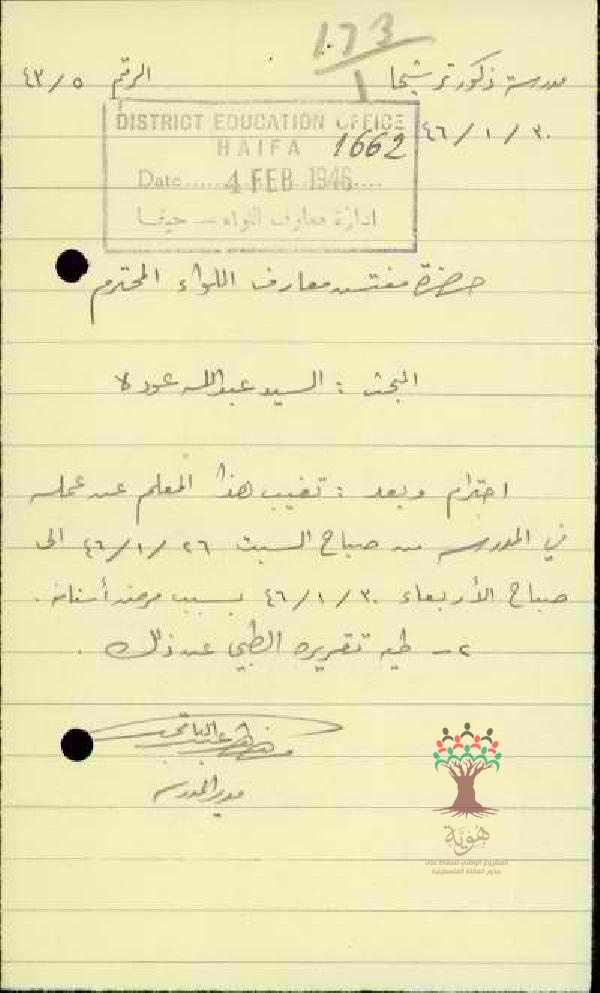 173
1
مدرسة ذكور ترشيحا الرقم ٤٣/٥
٤٦/١/٣٠
DISTRICT EDUCATION OFFICE
HAIFA 1662
Date 4 FEB 1946
ادارة معارف اللواء – حيفا
حضرة مفتش معارف اللواء المحترم
البحث : السيد عبدالله عوده
احترام وبعد : تغيب هذا المعلم عن عمله
في المدرسه من صباح السبت ٤٦/١/٢٦ الى
صباح الأربعاء ٤٦/١/٣٠ بسبب مرض أسنانه .
٢- طيه تقريره الطبي عن ذلك .
مدير المدرسه
هُوِيَّة
المشروع الوطني للحفاظ على
جذور العائلة الفلسطينية